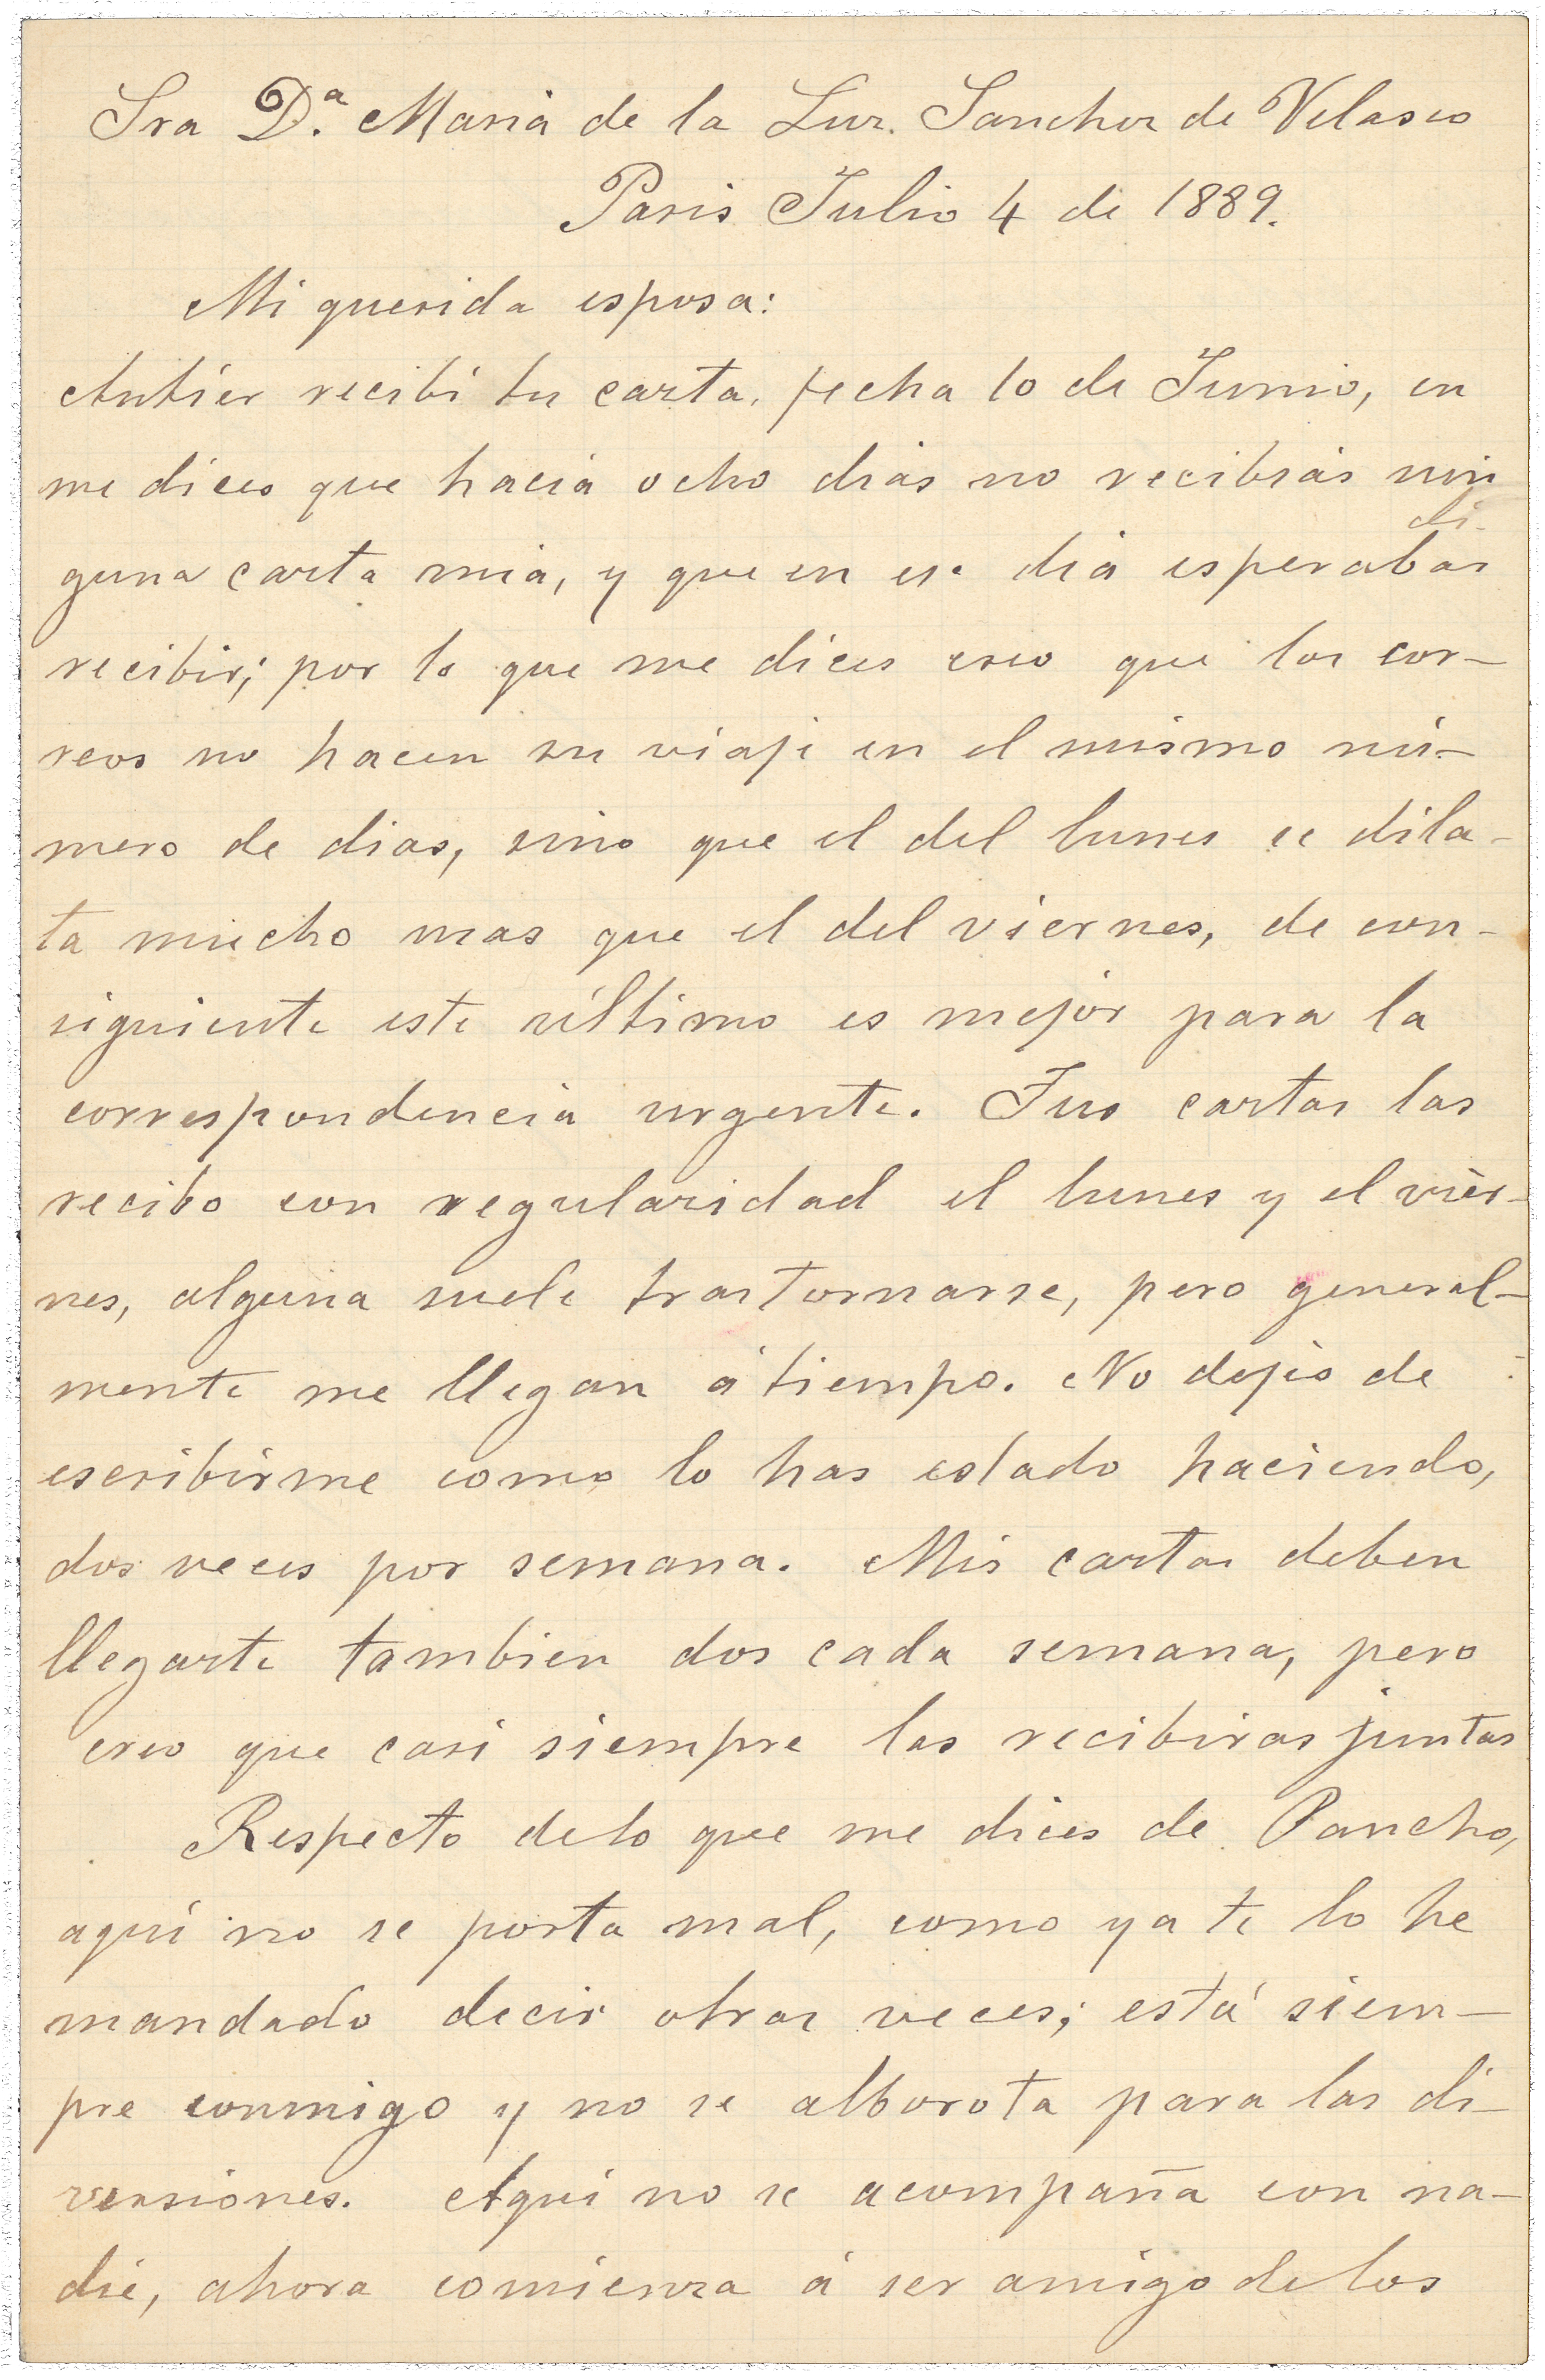 Sra D.ª Maria de la Luz. Sanchez de Velasco
Paris Julio 4 de 1889.
Mi querida esposa:
Antier recibi tu carta, fecha 10 de Junio, en
me dices que hacia ocho dias no recibias nin
di-
guna carta mia, y que en ese dia esperabas
recibir; por lo que me dices creo que los cor-
reos no hacen su viaje en el mismo nú-
mero de dias, sino que el del lunes se dila-
ta mucho mas que el del viernes, de con-
siguiente este último es mejor para la
correspondencia urgente. Tus cartas las
recibo con regularidad el lunes y el viér-
nes, alguna suele trastornarse, pero general-
mente me llegan á tiempo. No dejes de
escribirme como lo has estado haciendo,
dos veces por semana. Mis cartas deben
llegarte tambien dos cada semana, pero
creo que casi siempre las recibiras juntas
Respecto de lo que me dices de Pancho,
aquí no se porta mal, como ya te lo he
mandado decir otras veces; está siem-
pre conmigo y no se alborota para las di-
versiones. Aquí no se acompaña con na-
die, ahora comienza á ser amigo de los